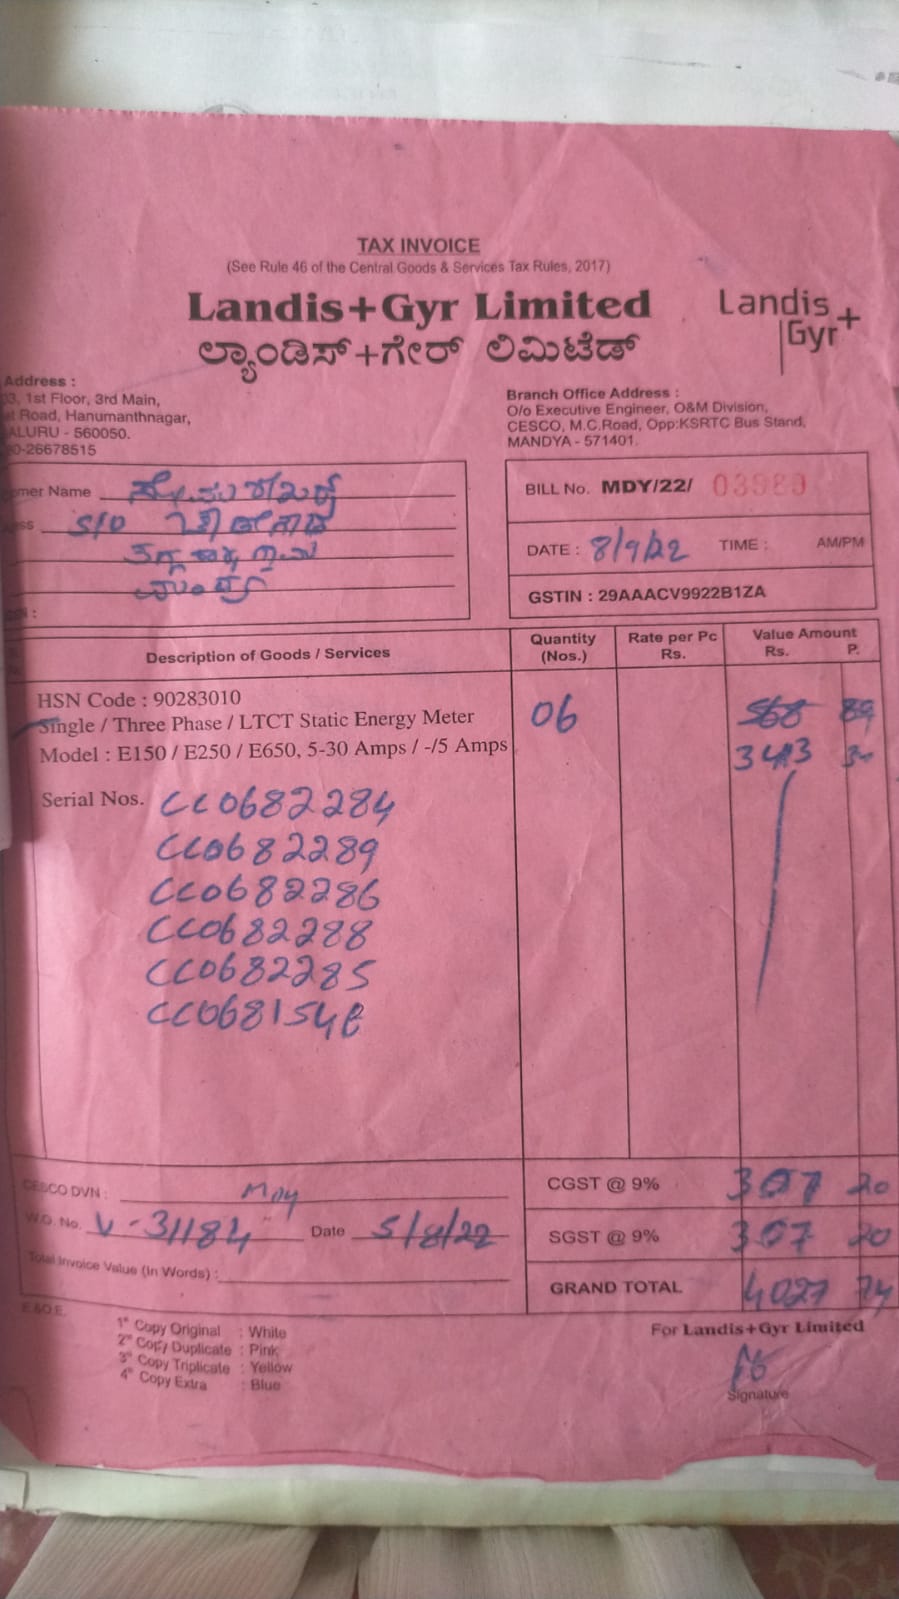 TAX INVOICE
(See Rule 46 of the Central Goods & Services Tax Rules, 2017)
Landis+Gyr Limited
Landis
Gyr+
ಲ್ಯಾಂಡಿಸ್+ಗೇರ್ ಲಿಮಿಟೆಡ್
Address :
1st Floor, 3rd Main,
Road, Hanumanthnagar,
ALURU - 560050.
0-26678515
Branch Office Address :
O/o Executive Engineer, O&M Division,
CESCO, M.C.Road, Opp:KSRTC Bus Stand,
MANDYA - 571401.
omer Name
ess S/O
BILL No. MDY/22/ 03980
DATE : 8/9/22 TIME : AM/PM
GSTIN : 29AAACV9922B1ZA
Description of Goods / Services
Quantity (Nos.)
Rate per Pc Rs.
Value Amount Rs. P.
HSN Code : 90283010
Single / Three Phase / LTCT Static Energy Meter 06 568 89
Model : E150 / E250 / E650, 5-30 Amps / -/5 Amps 3413
Serial Nos. CC0682284
CC0682289
CC0682286
CC0682288
CC0682285
CC0681546
CESCO DVN : MDY
W.O. No. V-31184 Date 5/8/22
Total Invoice Value (In Words) :
CGST @ 9% 307 20
SGST @ 9% 307 20
GRAND TOTAL 4027 74
E.&O.E.
1st Copy Original : White
2nd Copy Duplicate : Pink
3rd Copy Triplicate : Yellow
4th Copy Extra : Blue
For Landis+Gyr Limited
Signature